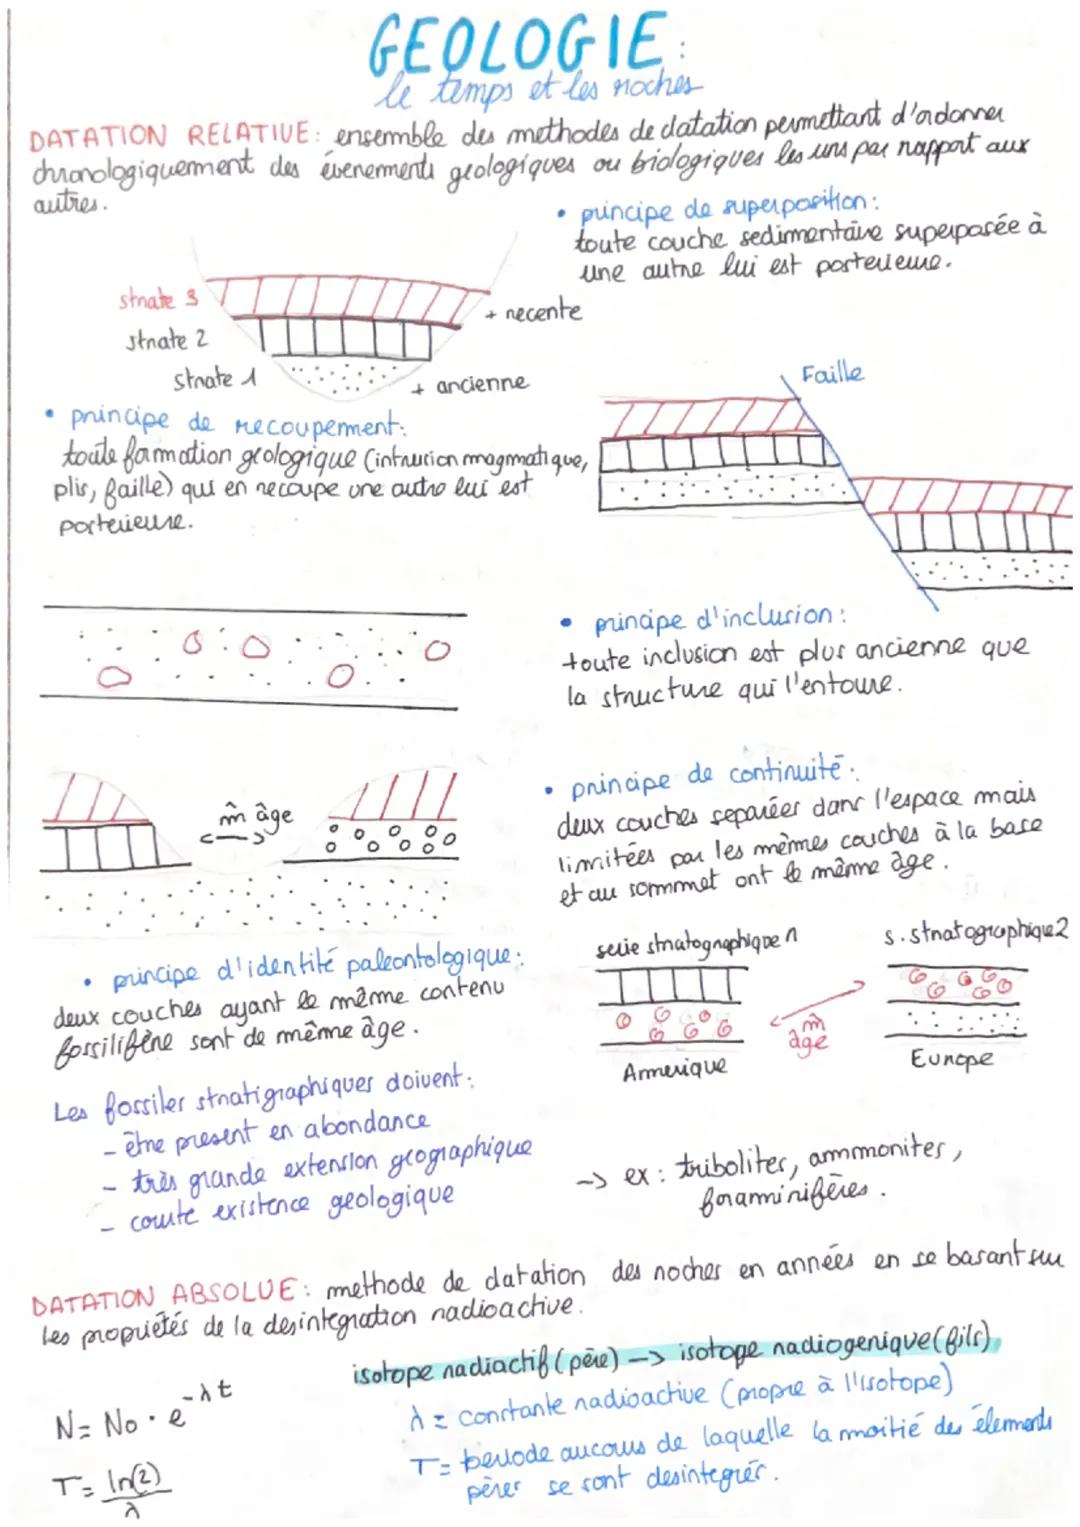 GEOLOGIE :
le temps et les roches
DATATION RELATIVE : ensemble des methodes de datation permettant d'ordonner
chronologiquement des évenements geologiques ou biologiques les uns par rapport aux
autres.
• principe de superposition :
toute couche sedimentaire superposée à
une autre lui est posterieure.
strate 3
+ recente
strate 2
strate 1
+ ancienne
Faille
• principe de recoupement :
toute formation geologique (intrusion magmatique,
plis, faille) qui en recoupe une autre lui est
posterieure.
• principe d'inclusion :
toute inclusion est plus ancienne que
la structure qui l'entoure.
m̂ âge
• principe de continuité :
deux couches separées dans l'espace mais
limitées par les mêmes couches à la base
et au sommmet ont le même âge.
serie stratographique 1
s. stratographique 2
m̂
âge
Amerique
Europe
• principe d'identité paleontologique :
deux couches ayant le même contenu
fossilifère sont de même âge.
Les fossiles stratigraphiques doivent :
- être present en abondance
- très grande extension geographique
- courte existence geologique
-> ex : triboliter, ammonites,
foraminifères.
DATATION ABSOLUE : methode de datation des roches en années en se basant sur
les propriétés de la desintegration radioactive.
isotope radiactif (père) -> isotope radiogenique (fils)
N = No · e^-λt
λ = constante radioactive (propre à l'isotope)
T = ln(2)/λ
T = periode aucours de laquelle la moitié des élements
pères se sont desintegrés.